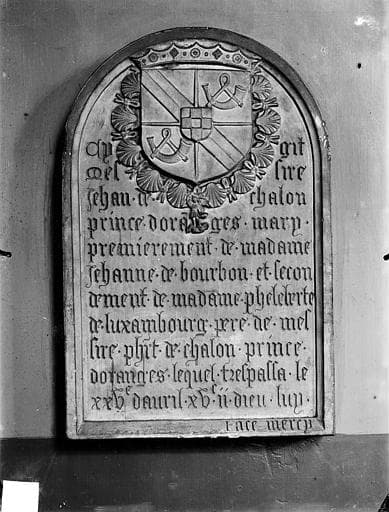 Cy gist
Mes sire
Jehan de chalon
prince doranges mary
premierement de madame
Jehanne de bourbon et secon
dement de madame pheleberte
de luxambourg pere de mes
sire phl't de chalon prince
doranges lequel trespassa le
xxv^e dauril xv^c ii dieu luy
face mercy